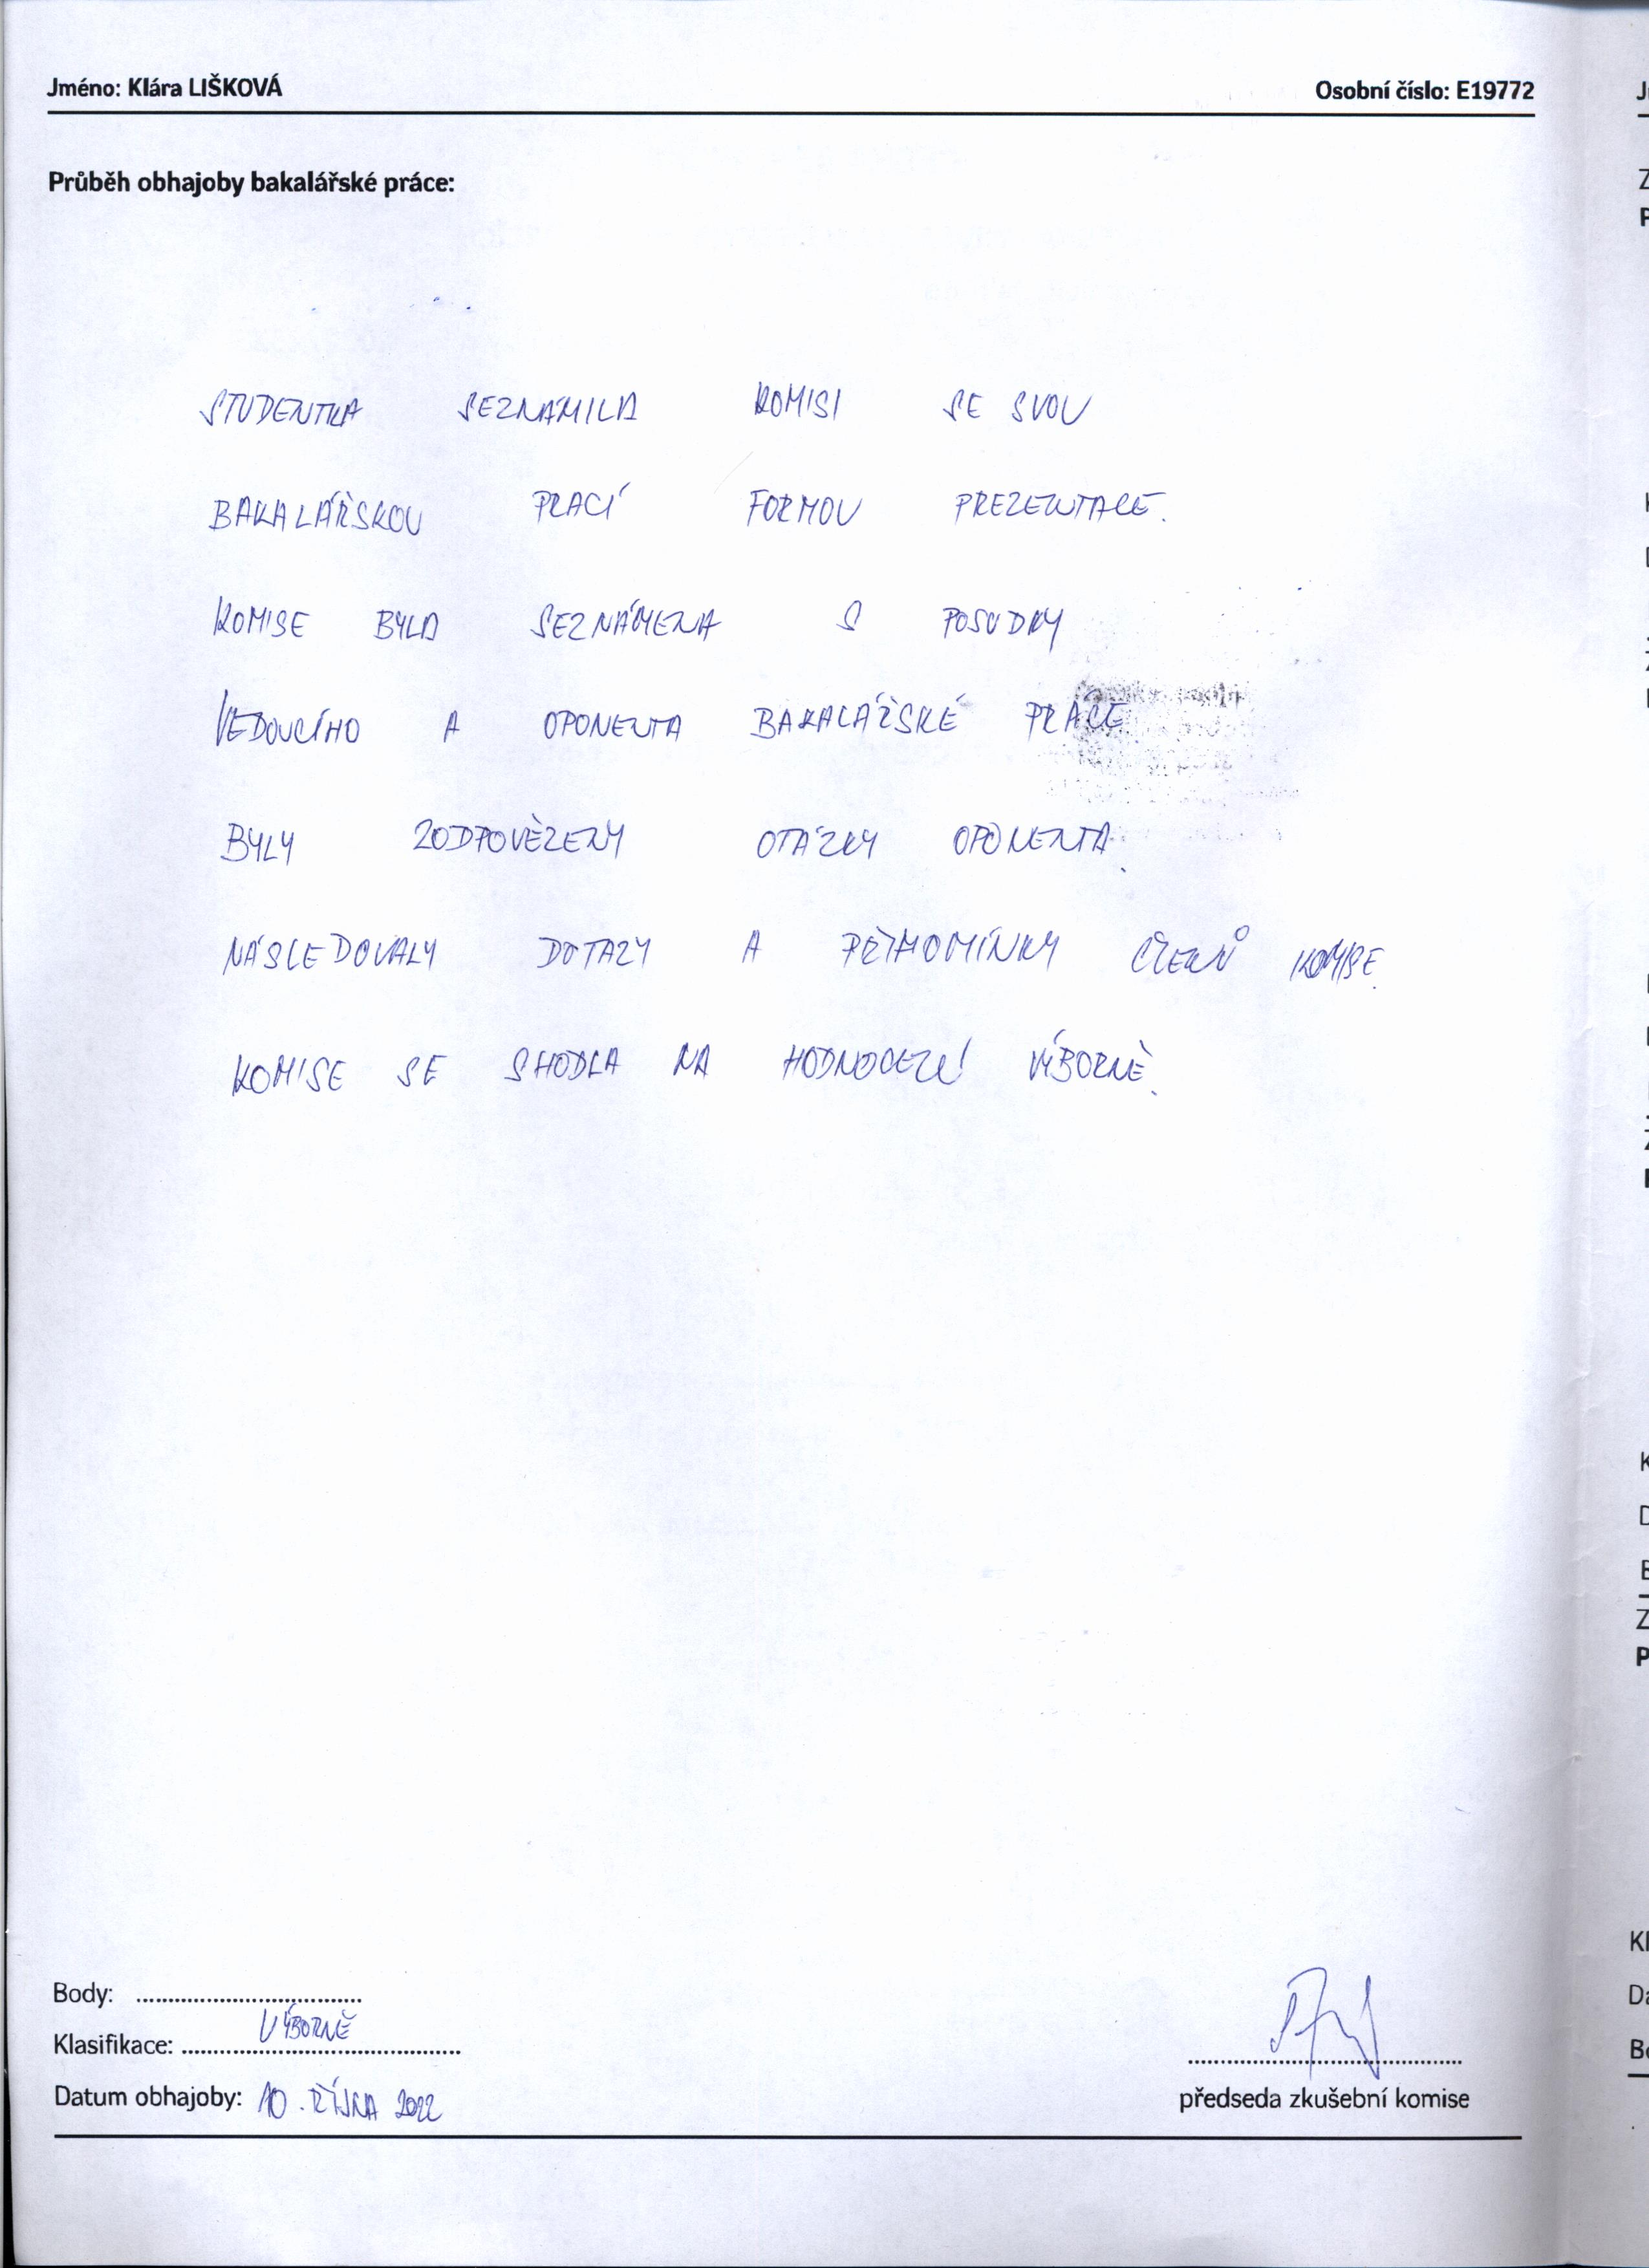 Jméno: Klára LIŠKOVÁ Osobní číslo: E19772
Průběh obhajoby bakalářské práce:
STUDENTKA SEZNÁMILA KOMISI SE SVOU
BAKALÁŘSKOU PRACÍ FORMOU PREZENTACE.
KOMISE BYLA SEZNÁMENA S POSUDKY
VEDOUCÍHO A OPONENTA BAKALÁŘSKÉ PRÁCE
BYLY ZODPOVĚZENY OTÁZKY OPONENTA.
NÁSLEDOVALY DOTAZY A PŘIPOMÍNKY ČLENŮ KOMISE.
KOMISE SE SHODLA NA HODNOCENÍ VÝBORNĚ.
Body: ....................................
Klasifikace: VÝBORNĚ
Datum obhajoby: 10. ŘÍJNA 2022
předseda zkušební komise